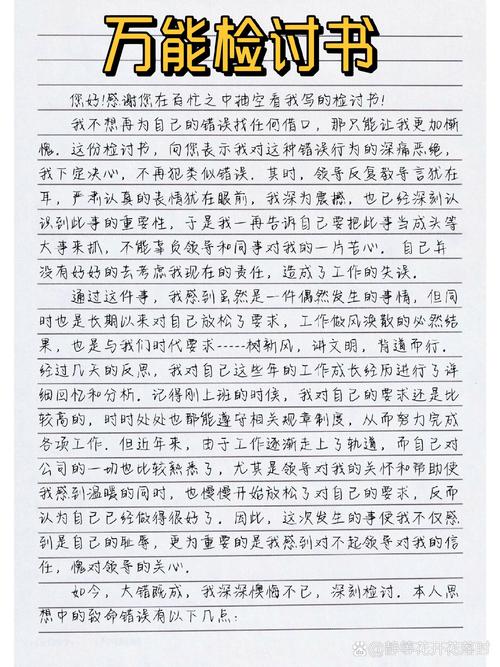 万能检讨书
您好!感谢您在百忙之中抽空看我写的检讨书!
我不想再为自己的错误找任何借口，那只能让我更加惭
愧．这份检讨书，向您表示我对这种错误行为的深痛恶绝，
我下定决心，不再犯类似错误．其时，领导反复教导言犹在
耳，严肃认真的表情犹在眼前，我深为震撼，也已经深刻认
识到此事的重要性，于是我一再告诉自己要把此事当成头等
大事来抓，不能辜负领导和同事对我的一片苦心．自己并
没有好好的去考虑我现在的责任，造成了工作的失误．
通过这件事，我感到虽然是一件偶然发生的事情，但同
时也是长期以来对自己放松了要求，工作做风涣散的必然结
果，也是与我们时代要求-----树新风，讲文明，背道而行．
经过几天的反思，我对自己这些年的工作成长经历进行了详
细回忆和分析．记得刚上班的时候，我对自己的要求还是比
较高的，时时处处也都能遵守相关规章制度，从而努力完成
各项工作．但近年来，由于工作逐渐走上了轨道，而自己对
公司的一切也比较熟悉了，尤其是领导对我的关怀和帮助使
我感到温暖的同时，也慢慢开始放松了对自己的要求，反而
认为自己已经做得很好了．因此，这次发生的事使我不仅感
到是自己的耻辱，更为重要的是我感到对不起领导对我的信
任，愧对领导的关心．
如今，大错既成，我深深懊悔不已，深刻检讨．本人思
想中的致命错误有以下几点：
@静等花开花落时